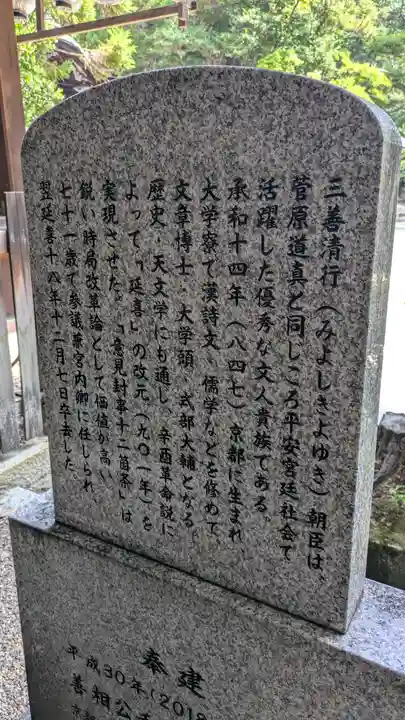 三善清行（みよしきよゆき）朝臣は、
菅原道真と同じころ平安宮廷社会で
活躍した優秀な文人貴族である。
承和十四年（八四七）京都に生まれ、
大学寮で漢詩文、儒学などを修めて
文章博士・大学頭・式部大輔となる。
歴史・天文学にも通じ、辛酉革命説に
よって、「延喜」の改元（九〇一年）を
実現させた。「意見封事十二箇条」は
鋭い時局改革論として価値が高い。
七十一歳で参議兼宮内卿に任じられ、
翌延喜十八年十二月七日卒去した。
奉建
平成30年(2018
善相公
京都